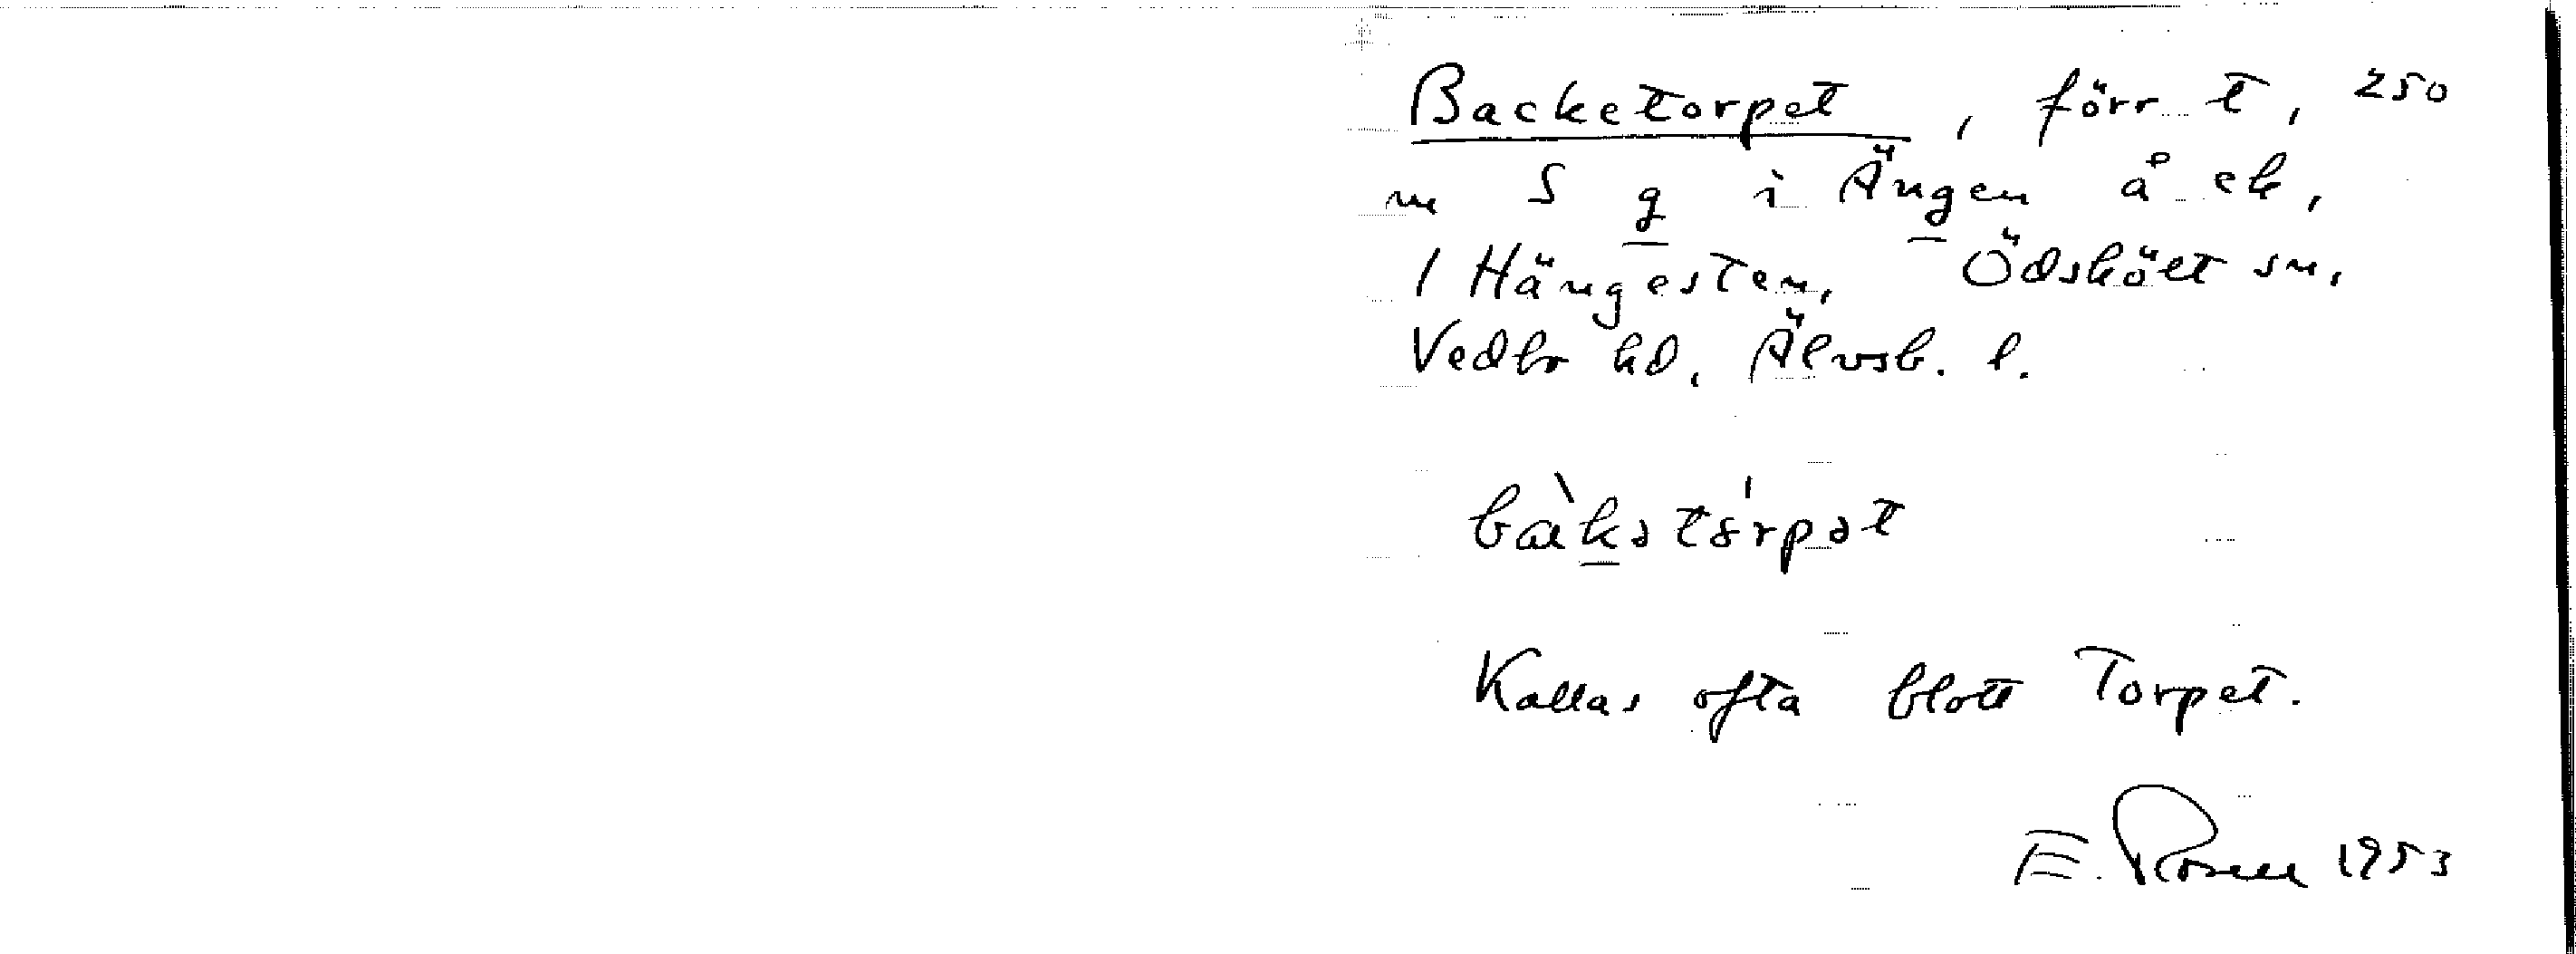 Backetorpet, förr t, 250
m S g i Ängen å ek,
1 Hängesten, Ödskölt sn,
Vedbo hd, Älvsb. l.
bàkətórpət
Kallas ofta blott Torpet.
E. Rosell 1953